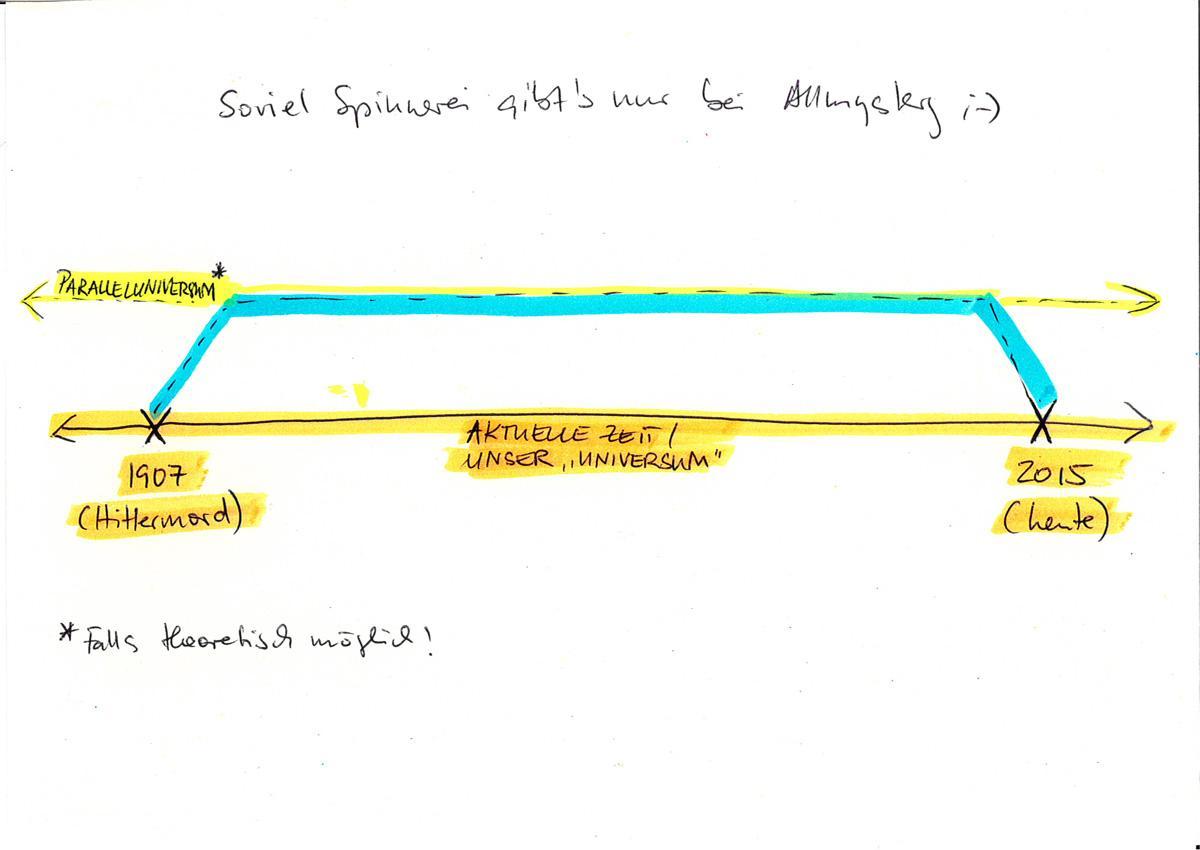 Soviel Spinnerei gibt's nur bei Allmystery ;-)
PARALLELUNIVERSUM*
AKTUELLE ZEIT /
UNSER „UNIVERSUM"
1907
(Hitlermord)
2015
(heute)
* Falls theoretisch möglich!